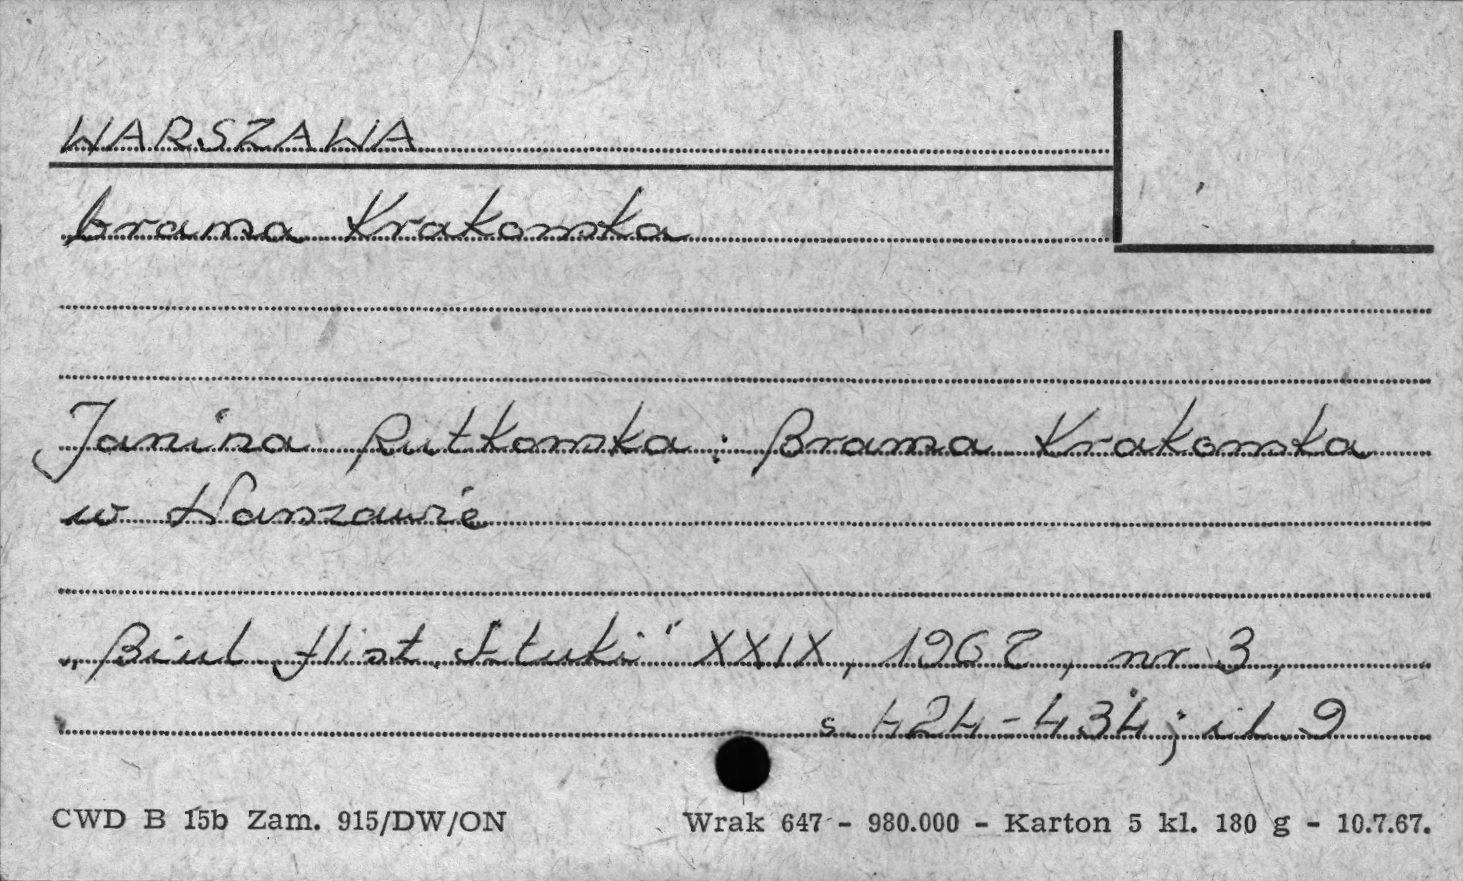 WARSZAWA
brama Krakowska
Janina Rutkowska: Brama Krakowska
w Warszawie
„Biul. Hist. Sztuki" XXIX, 1967, nr 3,
s. 424-434; il. 9
CWD B 15b Zam. 915/DW/ON Wrak 647 - 980.000 - Karton 5 kl. 180 g - 10.7.67.